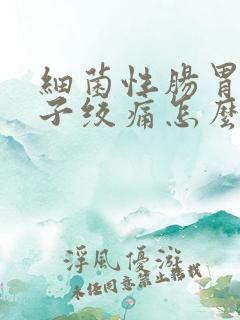 細菌性腸胃
子绞痛怎麼
浮風優游
未经同意禁止转载